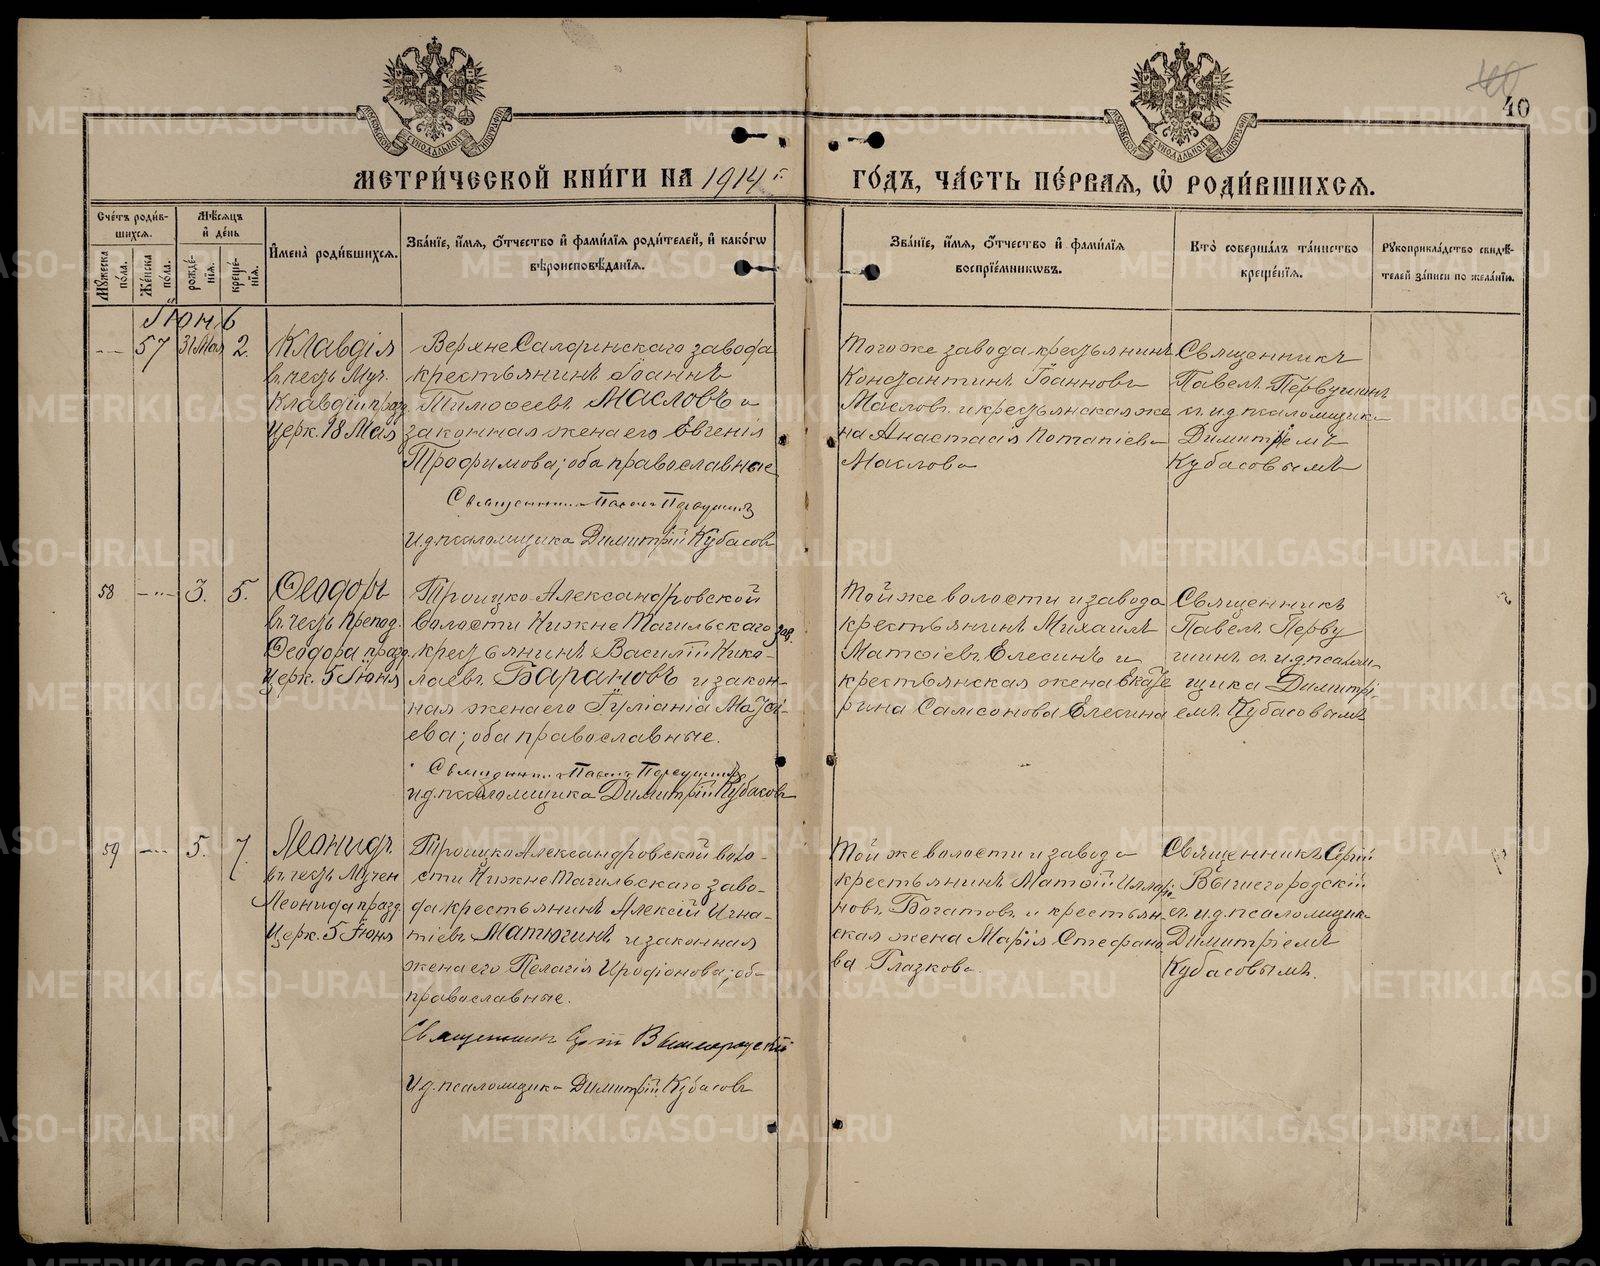 40
МЕТРИ́ЧЕСКОЙ КНИ́ГИ НА 1914 г.
ГО́ДЪ, ЧА́СТЬ ПЕ́РВАЯ, Ѡ҆ РОДИ́ВШИХСЯ.
Сче́тъ роди́в-
шихся.
Му́жеска по́ла.
Же́нска по́ла.
Мѣ́сяцъ
и҆ де́нь
рожде́-
нія.
креще́-
нія.
И҆мена̀ роди́вшихся.
Зва́нїе, и҆́мя, ѻ҆́тчество и҆ фами́лїя роди́телей, и҆ како́гѡ
вѣроисповѣ́данїя.
Зва́нїе, и҆́мя, ѻ҆́тчество и҆ фами́лїя
воспрїе́мникѡвъ.
Кто̀ соверша́лъ та́инство
креще́нїя.
Рꙋкоприкла́дство свидѣ́-
телей за́писи по жела́нїю.
Іюнь
— 57 31 Мая 2.
Клавдія
въ честь Муч.
Клавдіи празд.
Церк. 18 Мая
Верхне Салдинскаго завода
крестьянинъ Іоаннъ
Тимоѳеевъ Масловъ и
законная жена его Евгенія
Трофимова; оба православные
Священникъ Павелъ Первушинъ
И.д. псаломщика Димитрій Кубасовъ
Того же завода крестьянинъ
Константинъ Іоанновъ
Масловъ и крестьянская же
на Анастасія Потапіева
Маслова
Священникъ
Павелъ Первушинъ
съ и.д. псаломщика
Димитріемъ
Кубасовымъ
58 —"— 3. 5.
Ѳеодоръ
въ честь Препод.
Ѳеодора празд.
Церк. 5 Іюня
Троицко Александровской
волости Нижне Тагильскаго зав.
крестьянинъ Василій Нико-
лаевъ Барановъ и закон-
ная жена его Іуліанія Матѳі-
ева; оба православные.
Священникъ Павелъ Первушинъ
И.д. псаломщика Димитрій Кубасовъ
Той же волости и завода
крестьянинъ Михаилъ
Матѳіевъ Елесинъ и
крестьянская жена Екате
рина Самсонова Елесина
Священникъ
Павелъ Перву
шинъ съ и.д. псалом-
щика Димитрі-
емъ Кубасовымъ
59 — 5. 7.
Леонидъ
въ честь Мучен
Леонида празд.
Церк. 5 Іюня
Троицко Александровской воло-
сти Нижне Тагильскаго заво-
да крестьянинъ Алексій Игна-
тіевъ Матюгинъ и законная
жена его Пелагія Иродіонова; оба
православные.
Священникъ Сергій Вышегородскій
И.д. псаломщика Димитрій Кубасовъ
Той же волости и завода
крестьянинъ Матѳій Илларіо
новъ Богатовъ и крестьян-
ская жена Марія Стефано
ва Глазкова
Священникъ Сергій
Вышегородскій
съ и.д. псаломщика
Димитріемъ
Кубасовымъ.
METRIKI.GASO-URAL.RU